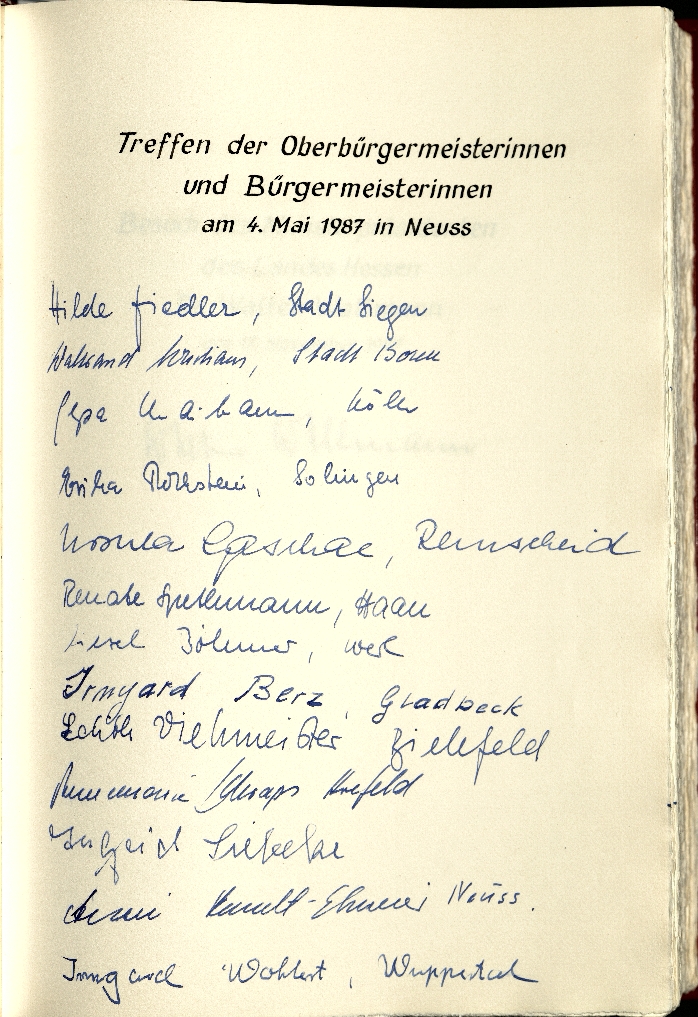 Treffen der Oberbürgermeisterinnen
und Bürgermeisterinnen
am 4. Mai 1987 in Neuss
Hilde Fiedler, Stadt Siegen
Waltraud Christians, Stadt Bonn
Köln
Erika Rothstein, Solingen
Ursula Remscheid
Renate Spethmann, Haan
Böhmer, Werl
Irmgard Berz, Gladbeck
Edith Viehmeister Bielefeld
Annemarie Schraps Krefeld
Ingrid Siebeke
Neuss.
Irmgard Wohlert, Wuppertal